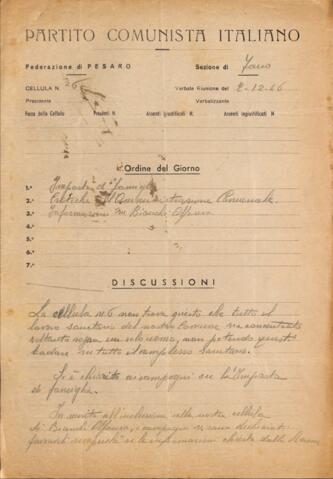 PARTITO COMUNISTA ITALIANO
Federazione di PESARO Sezione di Fano
CELLULA N. 26 Verbale Riunione del 2-12-46
Presidente Verbalizzante
Forza della Cellula Presenti N. Assenti giustificati N. Assenti ingiustificati N.
Ordine del Giorno
1.° Imposta di famiglia
2.° Critiche all'Amministrazione Comunale
3.° Informazioni su Bianchi Alfonso
4.°
5.°
6.°
7.°
DISCUSSIONI
La cellula n. 6 non trova giusto che tutto il
lavoro sanitario del nostro Comune sia concentrato
soltanto sopra un solo uomo, non potendo questi
badare su tutto il complesso sanitario.
Si è chiarito ai compagni su l'Imposta
di famiglia.
In merito all'inclusione alla nostra cellula
di Bianchi Alfonso, i compagni si sono dichiarati
favorevoli le informazioni chieste dalla